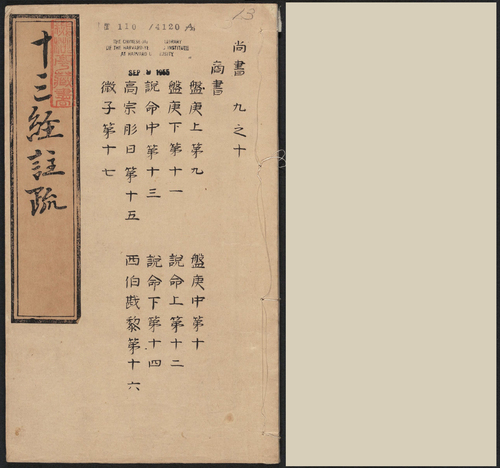 13
尚書 九之十
商書
盤庚上第九
盤庚中第十
盤庚下第十一
說命上第十二
說命中第十三
說命下第十四
高宗肜日第十五
西伯戡黎第十六
微子第十七
110 /4120
AT HARVARD
SEP 1966
十三經註疏